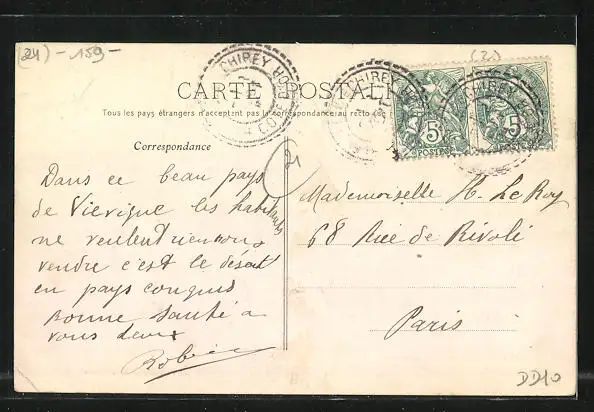 (24) - 159 -
(21)
CHIREY HOR
CHIREY HO
CHIREY HO
CARTE POSTALE
Tous les pays étrangers n'acceptent pas la correspondance au recto
5 5
POSTES POSTES
CO
Correspondance
21
Dans ce beau pays
de Vievigne les habitants
ne veulent rien nous
vendre c'est le désert
en pays conquis
Bonne santé a
vous deux
Mademoiselle H. Le Roy
68 Rue de Rivoli
Paris
DD10